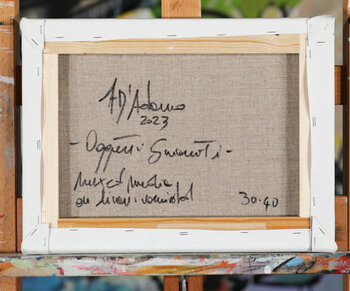 A D'Adamo
2023
- Oggetti Smarriti -
mixed media
on linen
30.40